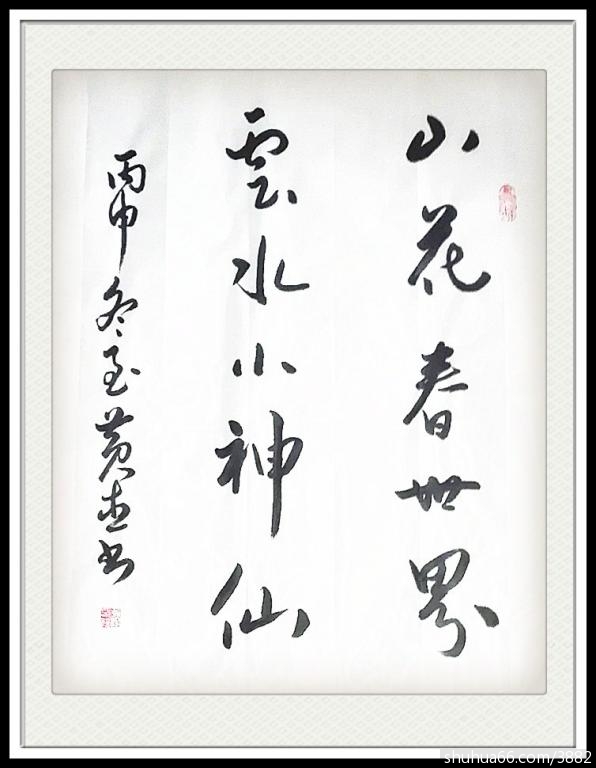 山花春世界
雲水小神仙
丙申冬至黄志书
shuhua66.com/3882